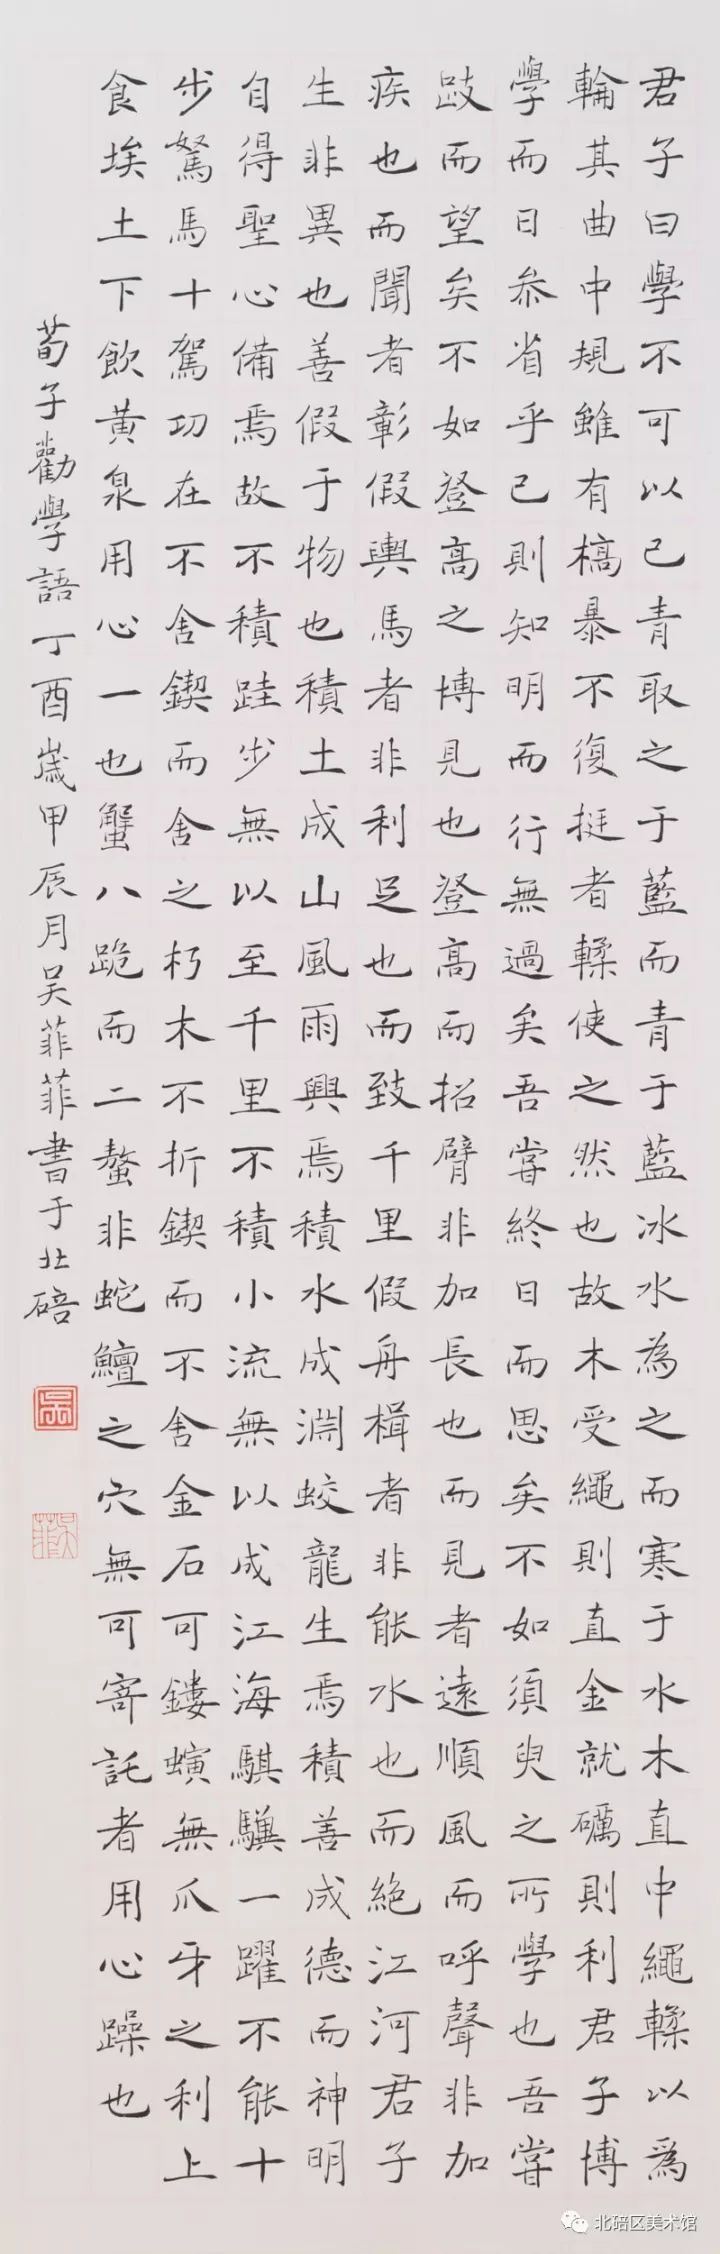 君子曰學不可以已青取之于藍而青于藍冰水為之而寒于水木直中繩輮以爲
輪其曲中規雖有槁暴不復挺者輮使之然也故木受繩則直金就礪則利君子博
學而日參省乎己則知明而行無過矣吾嘗終日而思矣不如須臾之所學也吾嘗
跂而望矣不如登高之博見也登高而招臂非加長也而見者遠順風而呼聲非加
疾也而聞者彰假輿馬者非利足也而致千里假舟楫者非能水也而絕江河君子
生非異也善假于物也積土成山風雨興焉積水成淵蛟龍生焉積善成德而神明
自得聖心備焉故不積跬步無以至千里不積小流無以成江海騏驥一躍不能十
步駑馬十駕功在不舍鍥而舍之朽木不折鍥而不舍金石可鏤螾無爪牙之利上
食埃土下飲黃泉用心一也蟹八跪而二螯非蛇鱣之穴無可寄託者用心躁也
荀子勸學語丁酉歲甲辰月吴菲菲書于北碚
吴
北碚区美术馆